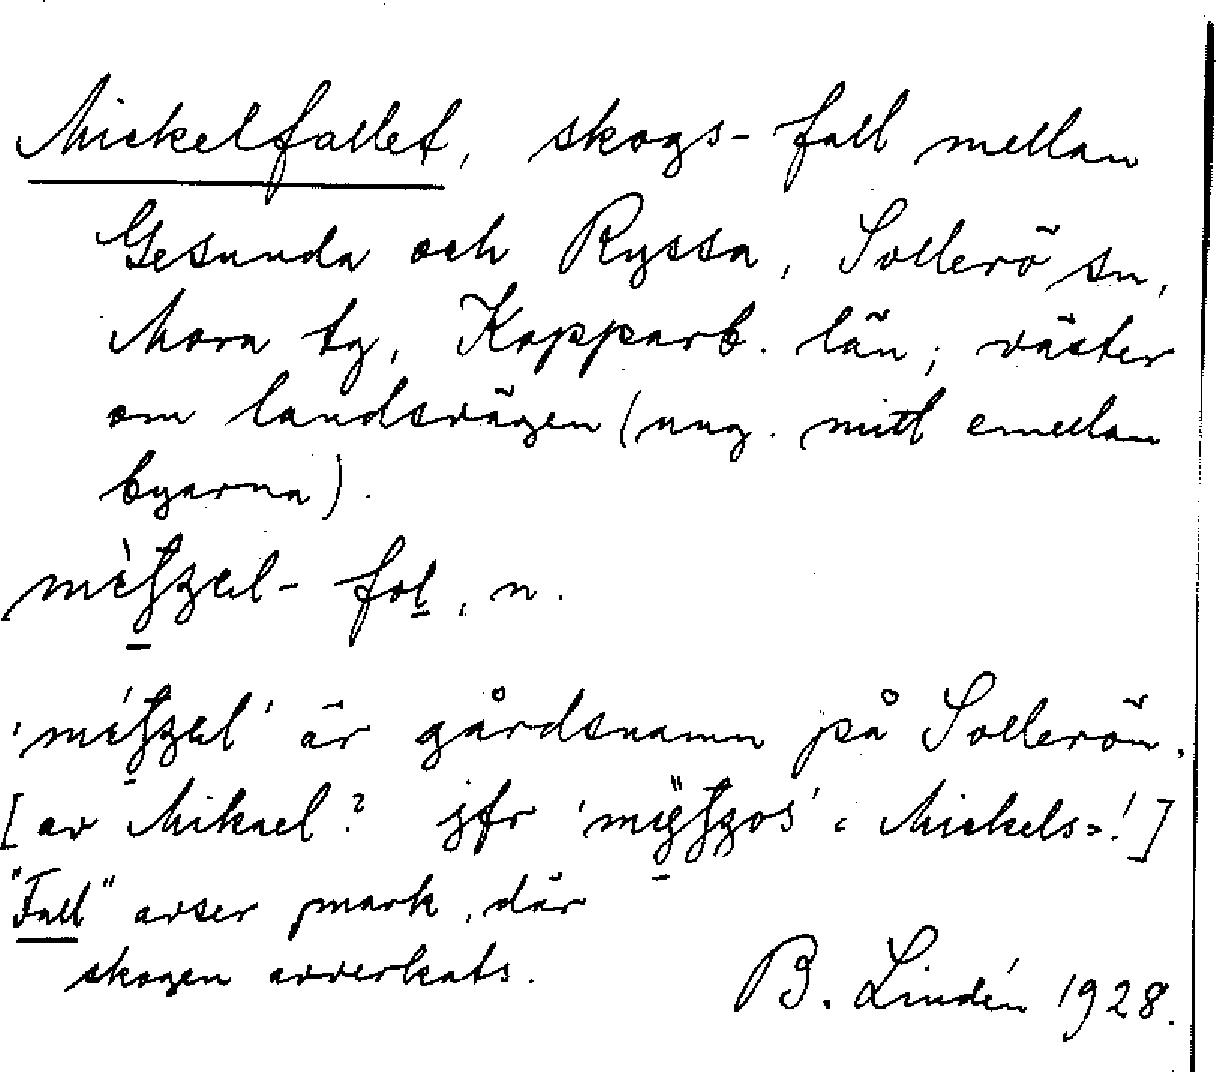 Mickelfallet, skogs-fall mellan
Gesunda och Ryssa, Sollerö sn,
Mora tg, Kopparb. län; väster
om landsvägen (ung. mitt emellan
byarna).
n.
är gårdsnamn på Sollerön.
[av Mikael? jfr Mickels=!]
"Fall" avser mark, där
skogen avverkats.
B. Lindén 1928.